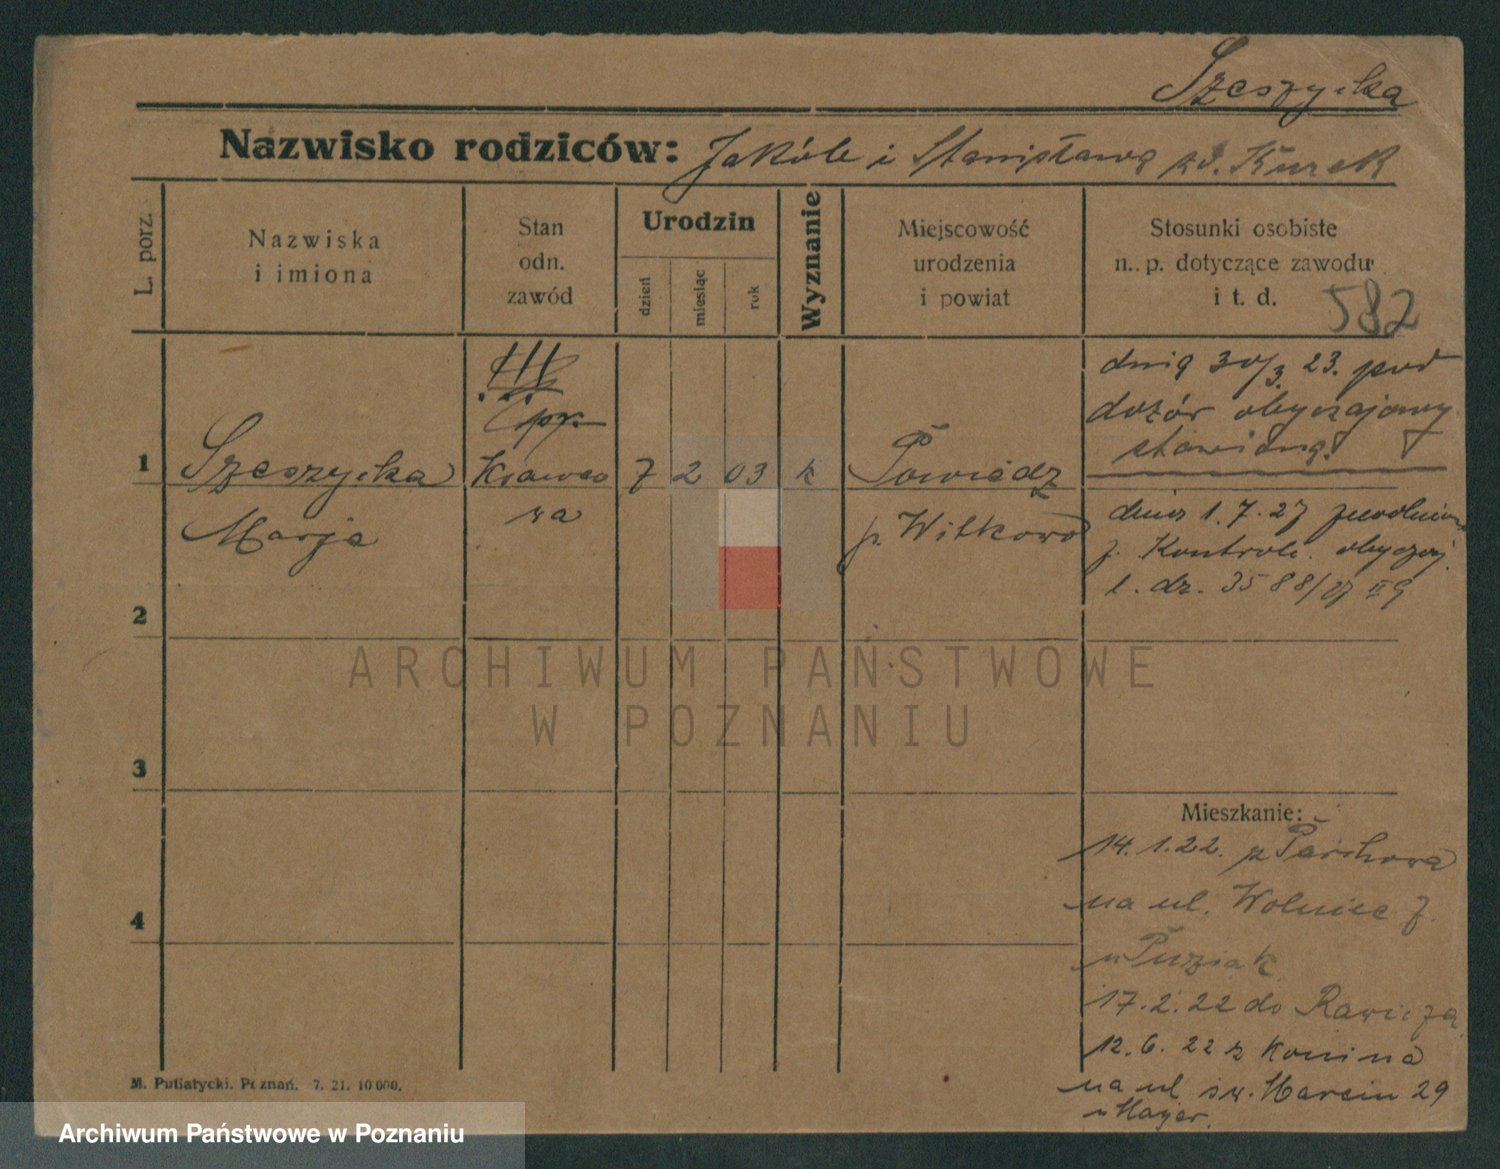 Szeszycka
Nazwisko rodziców: Jakób i Stanisława zd. Kurek
L. porz.
Nazwiska
i imiona
Stan
odn.
zawód
Urodzin
dzień
miesiąc
rok
Wyznanie
Miejscowość
urodzenia
i powiat
Stosunki osobiste
n. p. dotyczące zawodu
i t. d.
582
!!!
1
Szeszycka
Marja
Krawco
wa
7 2 03 k
Powidz
p. Witkowo
dnia 30/3. 23. pod
dozór obyczajowy
stawiona.
dnia 1.7.27 zwolniona
z Kontroli obyczaj.
l. dz. 3588/27
2
3
4
Mieszkanie:
14.1.22. z
na ul. Wolnica 7.
u
17.2.22 do Rawicza
12.6.22 z Konina
na ul św. Marcin 29
u Majer.
M. Putiatycki. Poznań. 7. 21. 10 000.
ARCHIWUM PAŃSTWOWE
W POZNANIU
Archiwum Państwowe w Poznaniu